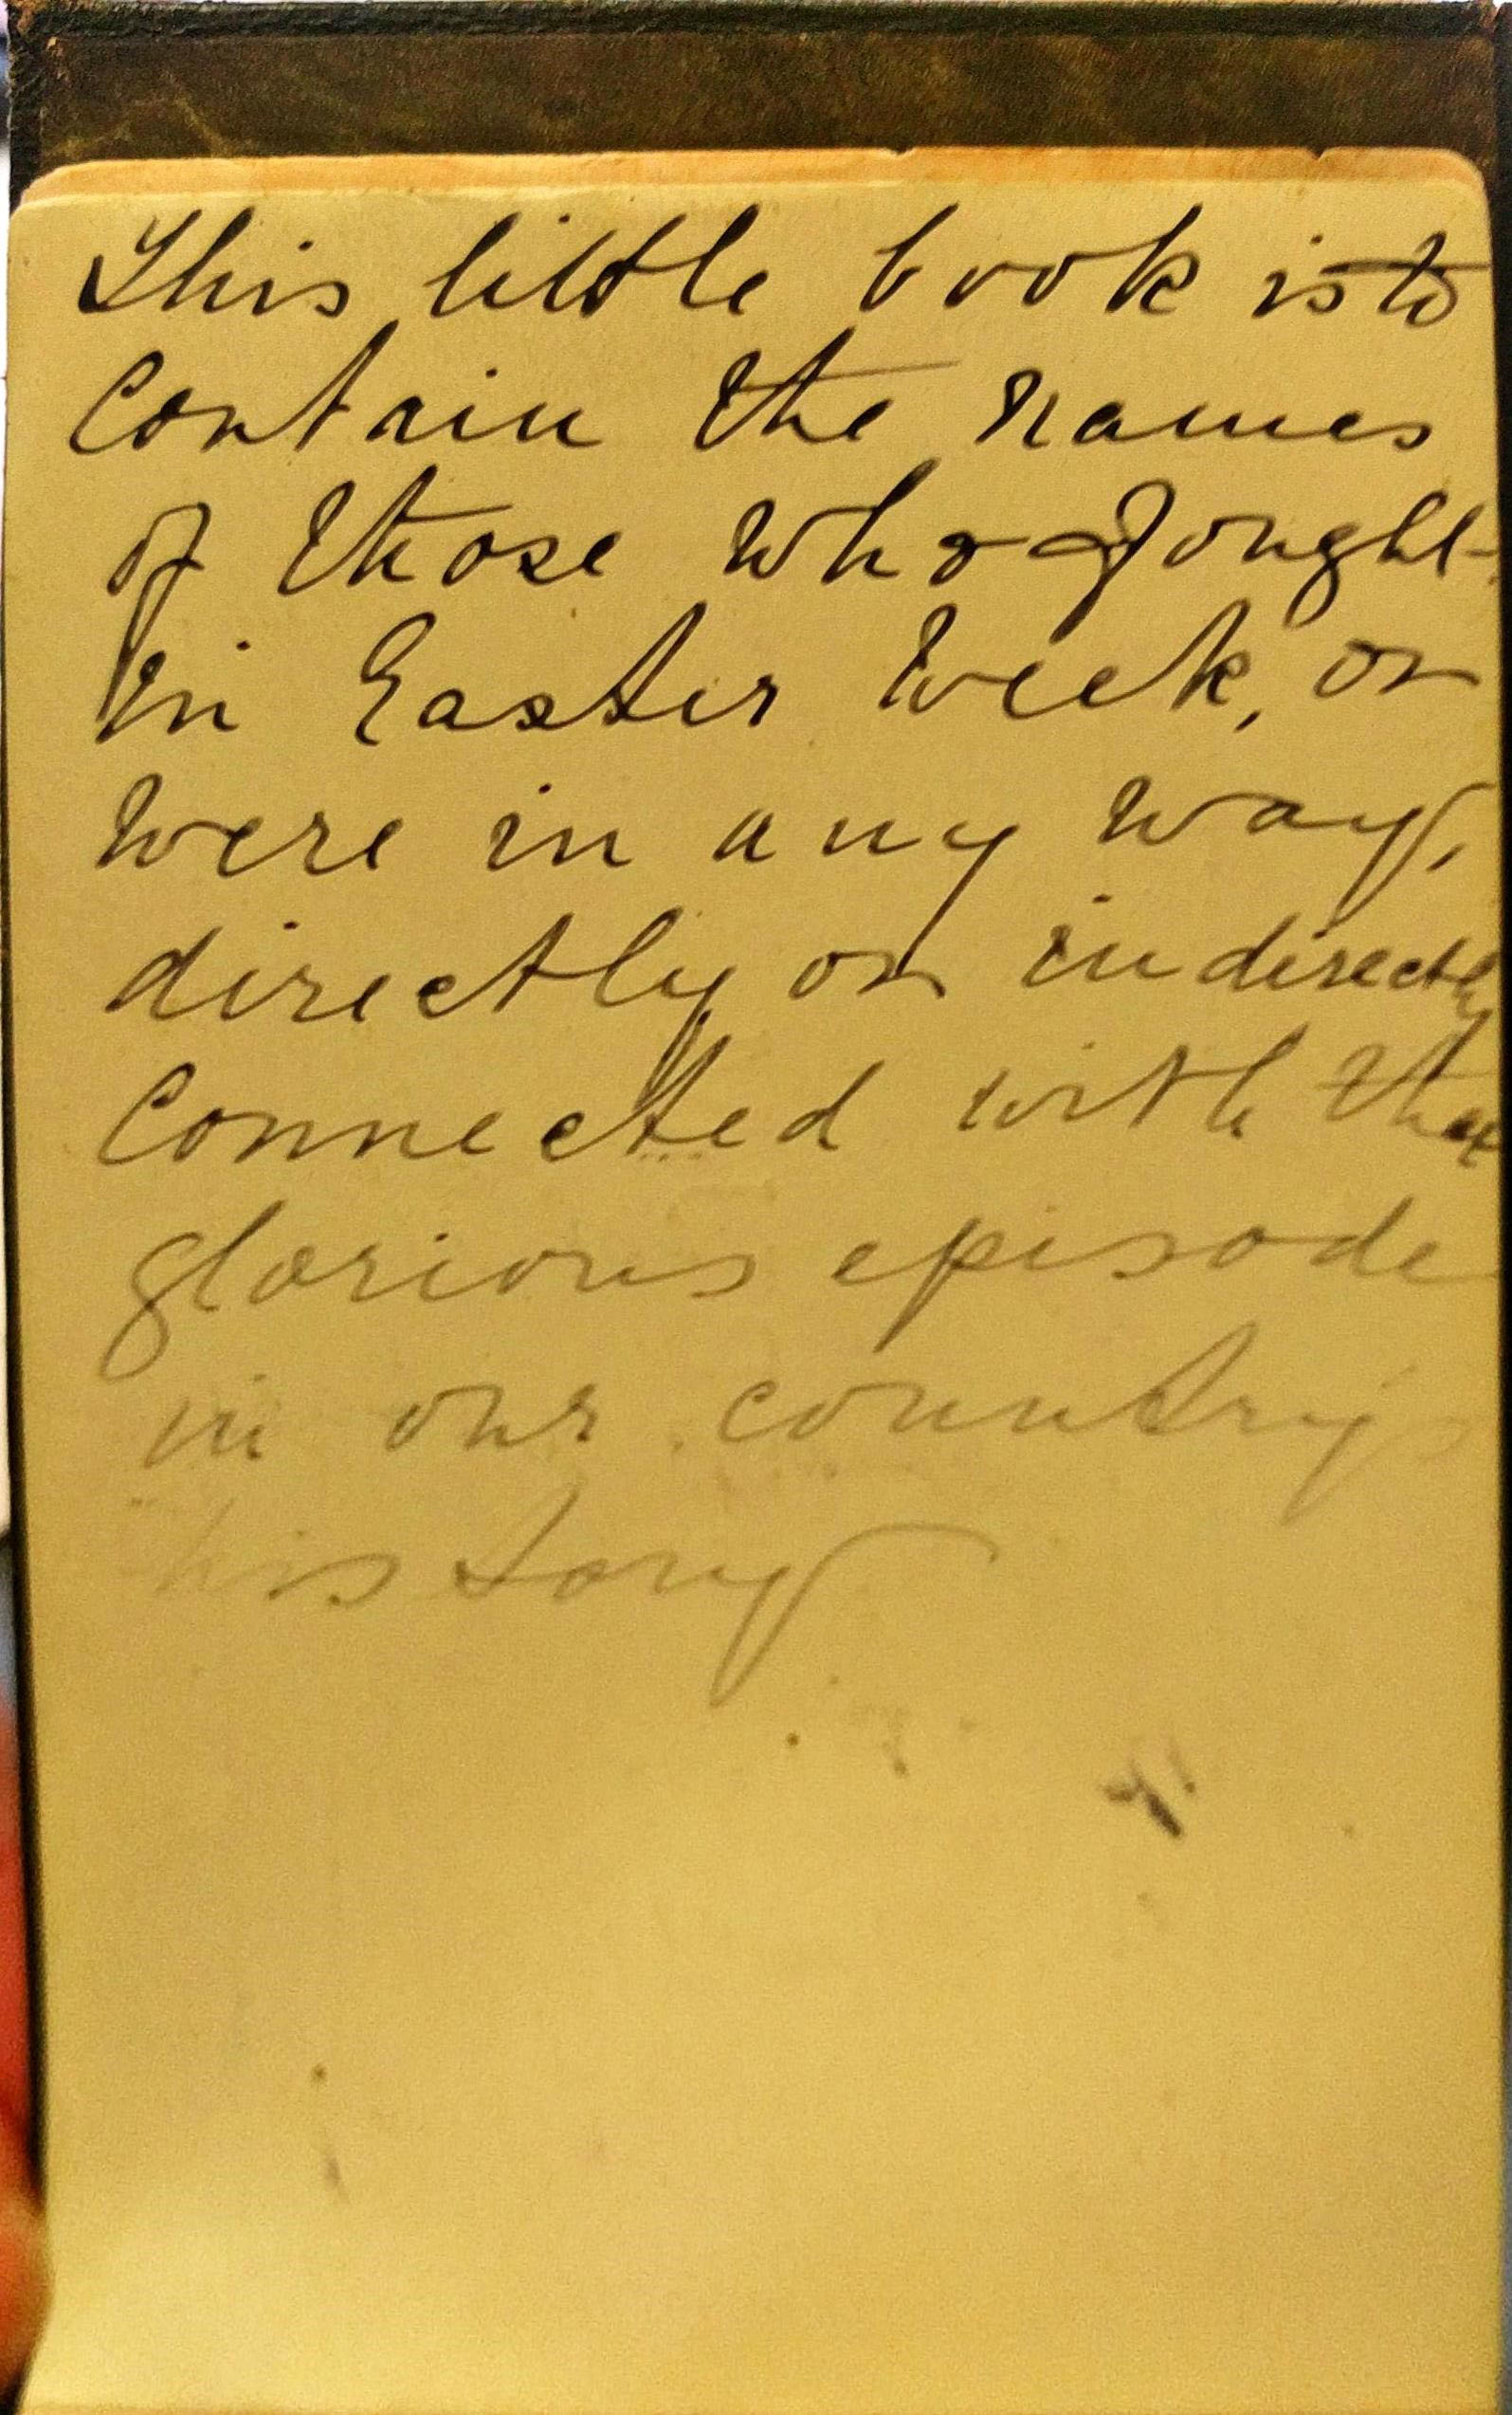 This little book is to
contain the names
of those who fought
in Easter Week, or
were in any way,
directly or indirectly
connected with that
glorious episode
in our country's
history